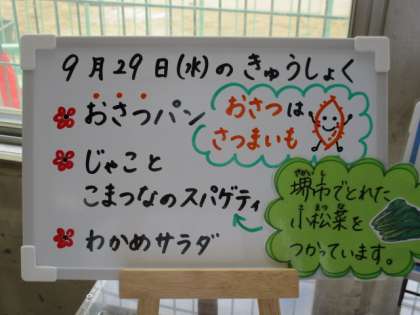 9月29日(水)のきゅうしょく
おさつパン
おさつは
さつまいも
じゃこと
こまつなのスパゲティ
わかめサラダ
堺市でとれた
小松菜を
つかっています。